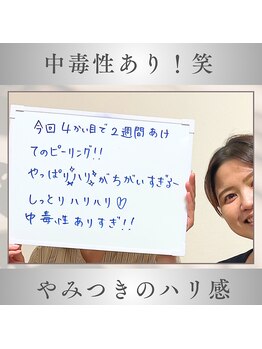 中毒性あり！笑
今回4かい目で2週間あけ
てのピーリング!!
やっぱりハリがちがいすぎるー
しっとりハリハリ♡
中毒性ありすぎ!!
やみつきのハリ感